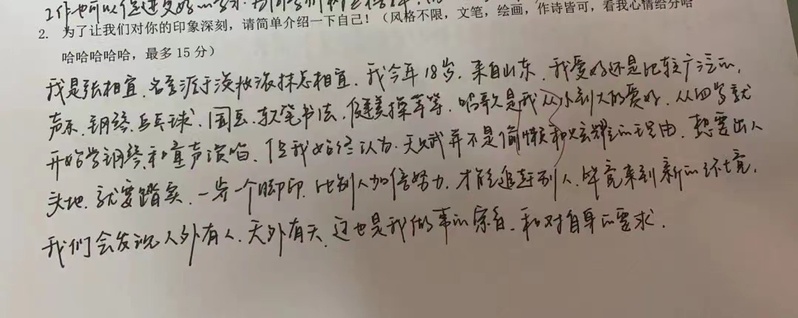 2. 为了让我们对你的印象深刻，请简单介绍一下自己！（风格不限，文笔，绘画，作诗皆可，看我心情给分哈
哈哈哈哈哈，最多 15 分）
我是张相宜，名字源于淡妆浓抹总相宜，我今年18岁，来自山东，我爱好还是比较广泛的，
声乐，钢琴，乒乓球，国画，软笔书法，健美操等等，唱歌是我从小到大的爱好，从四岁就
开始学钢琴和童声演唱，但我始终认为，天赋并不是偷懒和炫耀的理由，想要出人
头地，就要踏实，一步一个脚印，比别人加倍努力，才能追赶别人，毕竟来到新的环境，
我们会发现人外有人，天外有天，这也是我做事的原则，和对自身的要求．